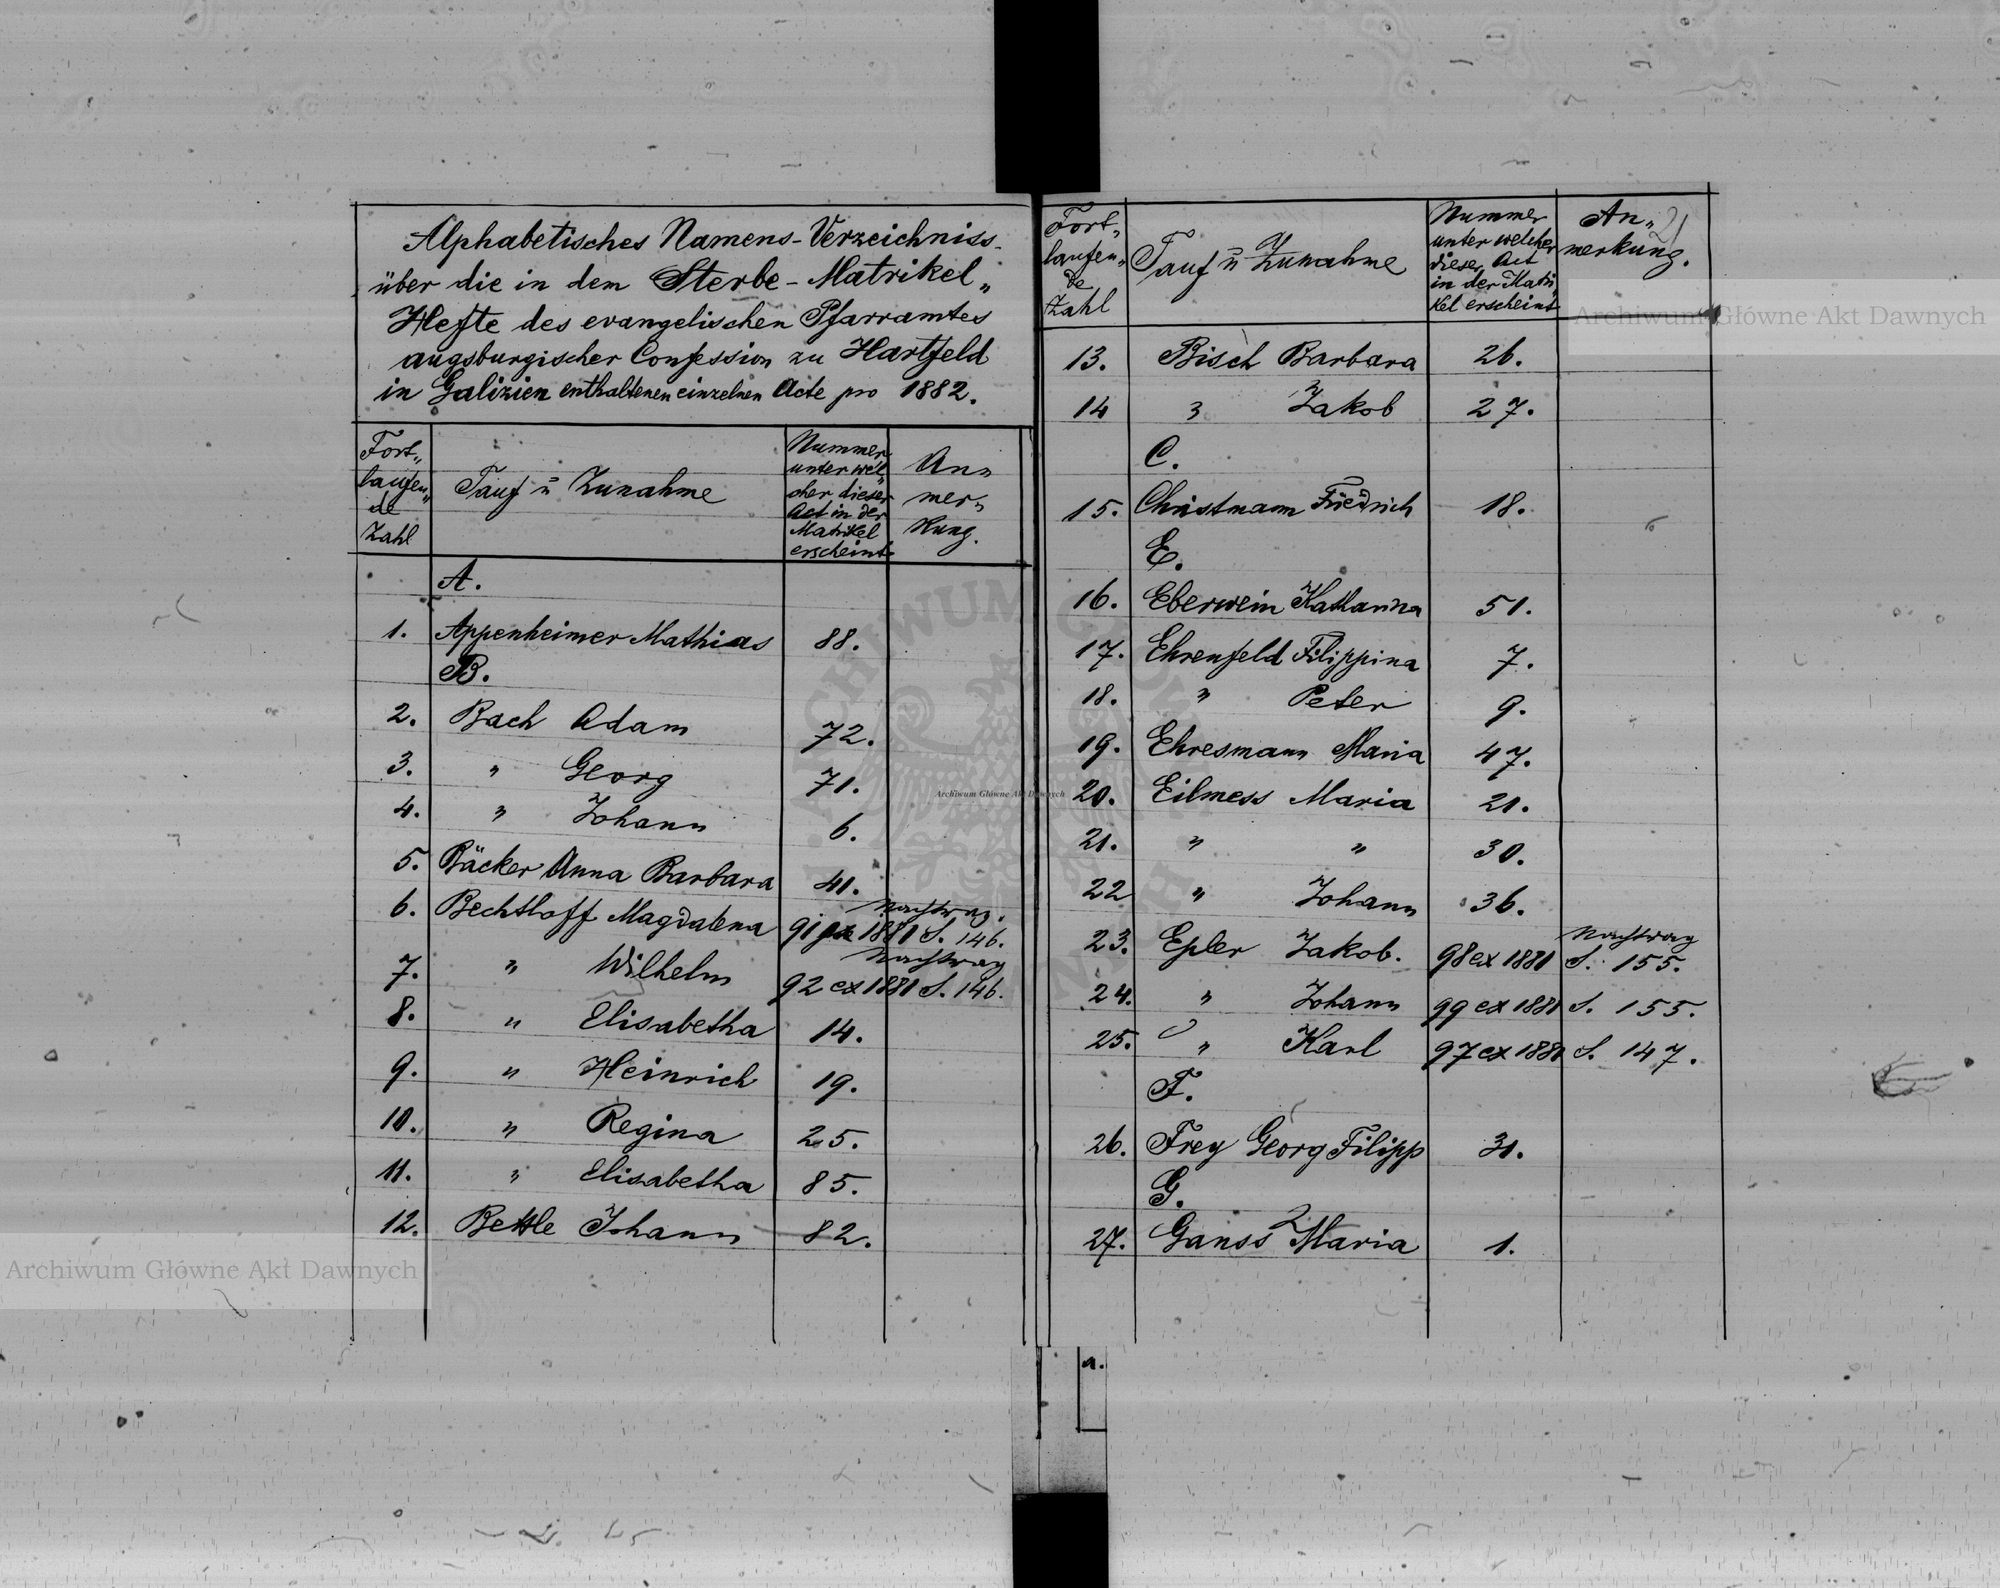 Alphabetisches Namens-Verzeichniss
über die in dem Sterbe-Matrikel„
Hefte des evangelischen Pfarramtes
augsburgischer Confession zu Hartfeld
in Galizien enthaltenen einzelnen Acte pro 1882.
Fort„
laufen„
de
Zahl
Tauf u Zunahme
Nummer
unter wel„
cher dieser
Act in der
Matrikel
erscheint
An„
mer„
kung.
A.
1. Appenheimer Mathias 88.
B.
2. Bach Adam 72.
3. " Georg 71.
4. " Johann 6.
5. Bäcker Anna Barbara 41.
6. Bechtloff Magdalena 91 ex 1881 Nachtrag. S. 146.
7. " Wilhelm 92 ex 1881 Nachtrag S. 146.
8. " Elisabetha 14.
9. " Heinrich 19.
10. " Regina 25.
11. " Elisabetha 85.
12. Bettle Johann 82.
Fort„
laufen„
de
Zahl
Tauf u Zunahme
Nummer
unter welcher
dieser Act
in der Matri„
kel erscheint
An„
merkung.
21
13. Bisch Barbara 26.
14 " Jakob 27.
C.
15. Christmann Friedrich 18.
E.
16. Eberwein Katharina 51.
17. Ehrenfeld Filippina 7.
18. " Peter 9.
19. Ehresmann Maria 47.
20. Eilmess Maria 21.
21. " " 30.
22 " Johann 36.
23. Epler Jakob. 98 ex 1881 Nachtrag S. 155.
24. " Johann 99 ex 1881 S. 155.
25. " Karl 97 ex 1881 S. 147.
F.
26. Frey Georg Filipp 31.
G.
27. Ganss Maria 1.
a.
Archiwum Główne Akt Dawnych
Archiwum Główne Akt Dawnych
Archiwum Główne Akt Dawnych